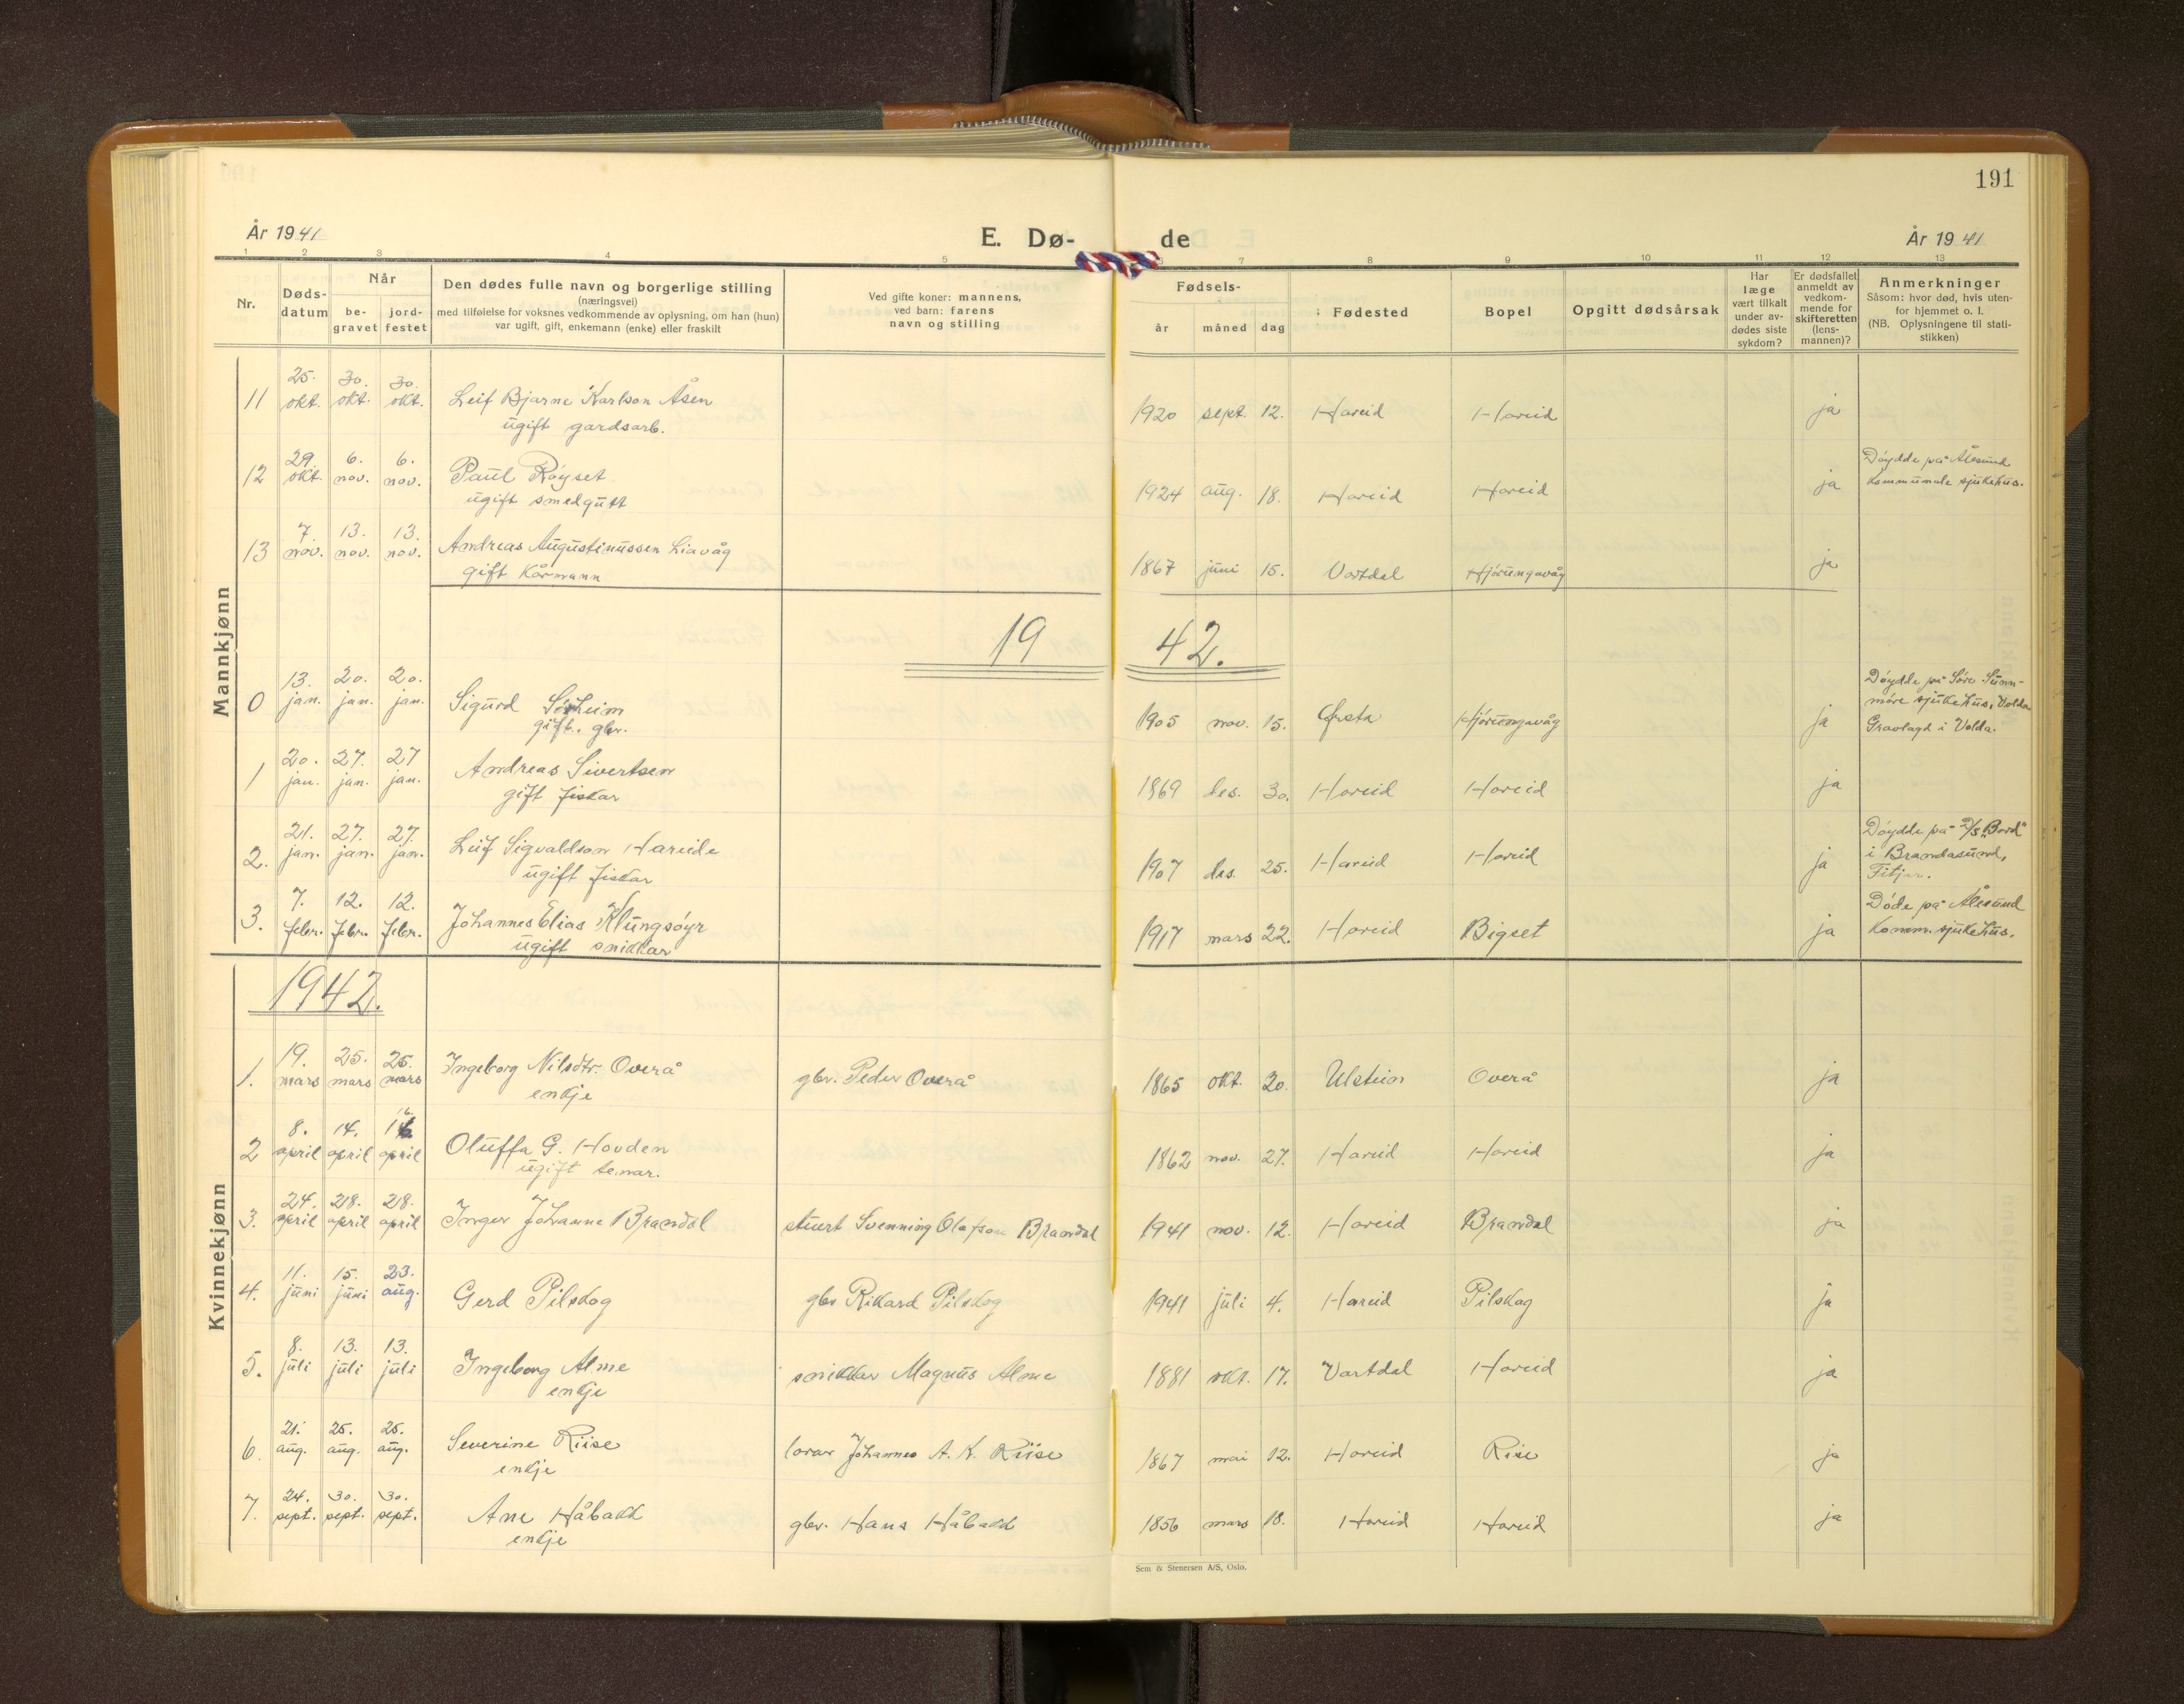 191
År 1941
E. Dø-
de
År 1941
1 2 3 4 5 6 7 8 9 10 11 12 13
Nr.
Døds-
datum
Når
be-
gravet
jord-
festet
Den dødes fulle navn og borgerlige stilling
(næringsvei)
med tilføielse for voksnes vedkommende av oplysning, om han (hun)
var ugift, gift, enkemann (enke) eller fraskilt
Ved gifte koner: mannens,
ved barn: farens
navn og stilling
Fødsels-
år måned dag
Fødested
Bopel
Opgitt dødsårsak
Har
læge
vært tilkalt
under av-
dødes siste
sykdom?
Er dødsfallet
anmeldt av
vedkom-
mende for
skifteretten
(lens-
mannen)?
Anmerkninger
Såsom: hvor død, hvis uten-
for hjemmet o. l.
(NB. Oplysningene til stati-
stikken)
Mannkjønn
25. 30. 30.
11 okt. okt. okt. Leif Bjarne Karlson Åsen 1920 sept. 12. Hareid Hareid ja
ugift gardsarb.
29. 6. 6.
12 okt. nov. nov. Paul Röyset 1924 aug. 18. Hareid Hareid ja
ugift smedgutt
Döydde på Ålesund
Kommunale sjukehus.
7. 13. 13.
13 nov. nov. nov. Andreas Augustinussen Liavåg 1867 juni 15. Vartdal Hjörungavåg ja
gift kårmann
19 42.
13. 20. 20.
0 jan. jan. jan. Sigurd Sörheim 1905 nov. 15. Örsta Hjörungavåg ja
gift. gbr.
Döydde på Söre Sunn-
möre sjukehus, Volda
Gravlagd i Volda.
20. 27. 27
1 jan. jan. jan. Andreas Sivertsen 1869 des. 30. Hareid Hareid ja
gift fiskar
21. 27. 27.
2. jan. jan. jan. Leif Sigvaldson Hareide 1907 des. 25. Hareid Hareid ja
ugift fiskar
Döydde på "Bord"
i Brandasund,
Fitjar.
7. 12. 12.
3. febr. febr. febr. Johannes Elias Klungsöyr 1917 mars 22. Hareid Bigset ja
ugift snikkar
Döde på Ålesund
Komm. sjukehus.
Kvinnekjønn
1942.
19. 25. 25.
1. mars mars mars Ingeborg Nilsdtr. Overå gbr. Peder Overå 1865 okt. 20. Ulstein Overå ja
enkje
8. 14. 16.
2 april april april Oluffa G. Hovden 1862 nov. 27. Hareid Hareid ja
ugift tenar.
24. 28. 28.
3. april april april Inger Johanne Brandal stuert Svenning Olafson Brandal 1941 nov. 12. Hareid Brandal ja
11. 15. 23.
4. juni juni aug. Gerd Pilskog gbr Rikard Pilskog 1941 juli 4. Hareid Pilskog ja
8. 13. 13.
5. juli juli juli Ingeborg Alme snikkar Magnus Alme 1881 okt. 17. Vartdal Hareid ja
enkje
21. 25. 25.
6. aug. aug. aug. Severine Riise Johannes A. K. Riise 1867 mai 12. Hareid Rise ja
enkje
24. 30. 30.
7. sept. sept. sept. Ane Håbakk gbr. Hans Håbakk 1856 mars 18. Hareid Hareid ja
enkje
Sem & Stenersen A/S, Oslo.